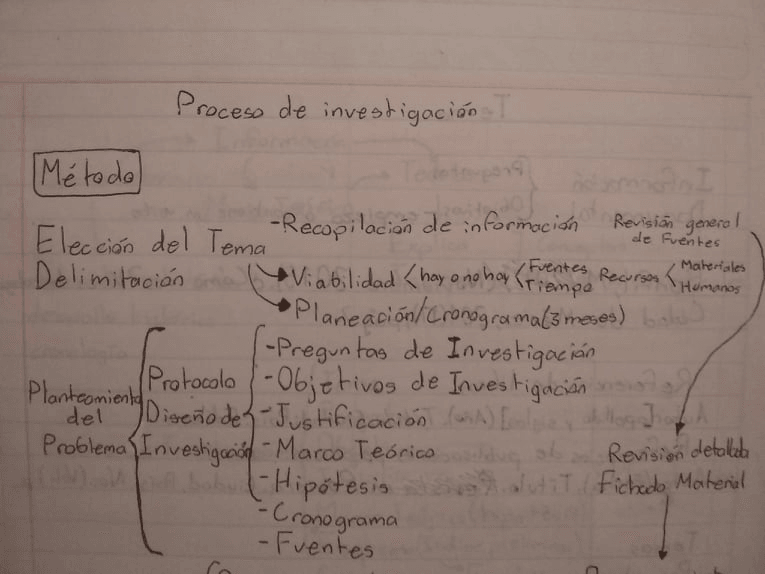 Proceso de investigación
Método
Elección del Tema
Delimitación
-Recopilación de información
Revisión general
de Fuentes
Viabilidad < hay o no hay < Fuentes
Tiempo
Recursos < Materiales
Humanos
Planeación/Cronograma(3 meses)
Planteamiento
del
Problema
Protocolo
Diseño de
Investigación
-Preguntas de Investigación
-Objetivos de Investigación
-Justificación
-Marco Teórico
-Hipótesis
-Cronograma
-Fuentes
Revisión detallada
Fichado Material